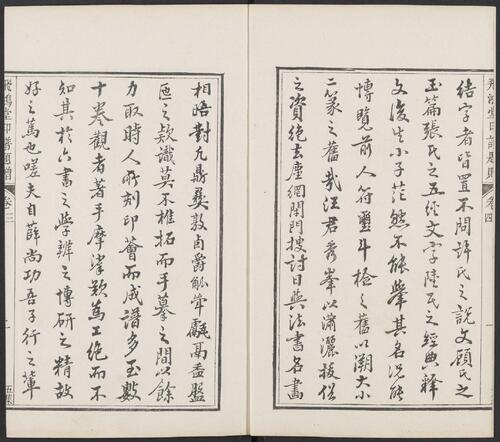 結字者皆置不問許氏之說文顧氏之
玉篇張氏之五經文字陸氏之經典釋
文後生小子茫然不能舉其名況能
博覽前人符璽斗檢之舊以溯大小
二篆之舊哉汪君秀峯以瀟灑拔俗
之資絕去塵網閉門搜討日與法書名畫
相晤對九鼎彝敦卣爵觚常甗鬲盉盤
匜之款識莫不椎拓而手摹之間以餘
力取時人所刻印薈而成譜多至數
十卷觀者著手摩挲歎爲工絕而不
知其於六書之學辨之博研之精故
好之篤也嗟夫自薛尚功吾子行之輩
飛鴻堂印譜題贈
卷三
五集
卷四